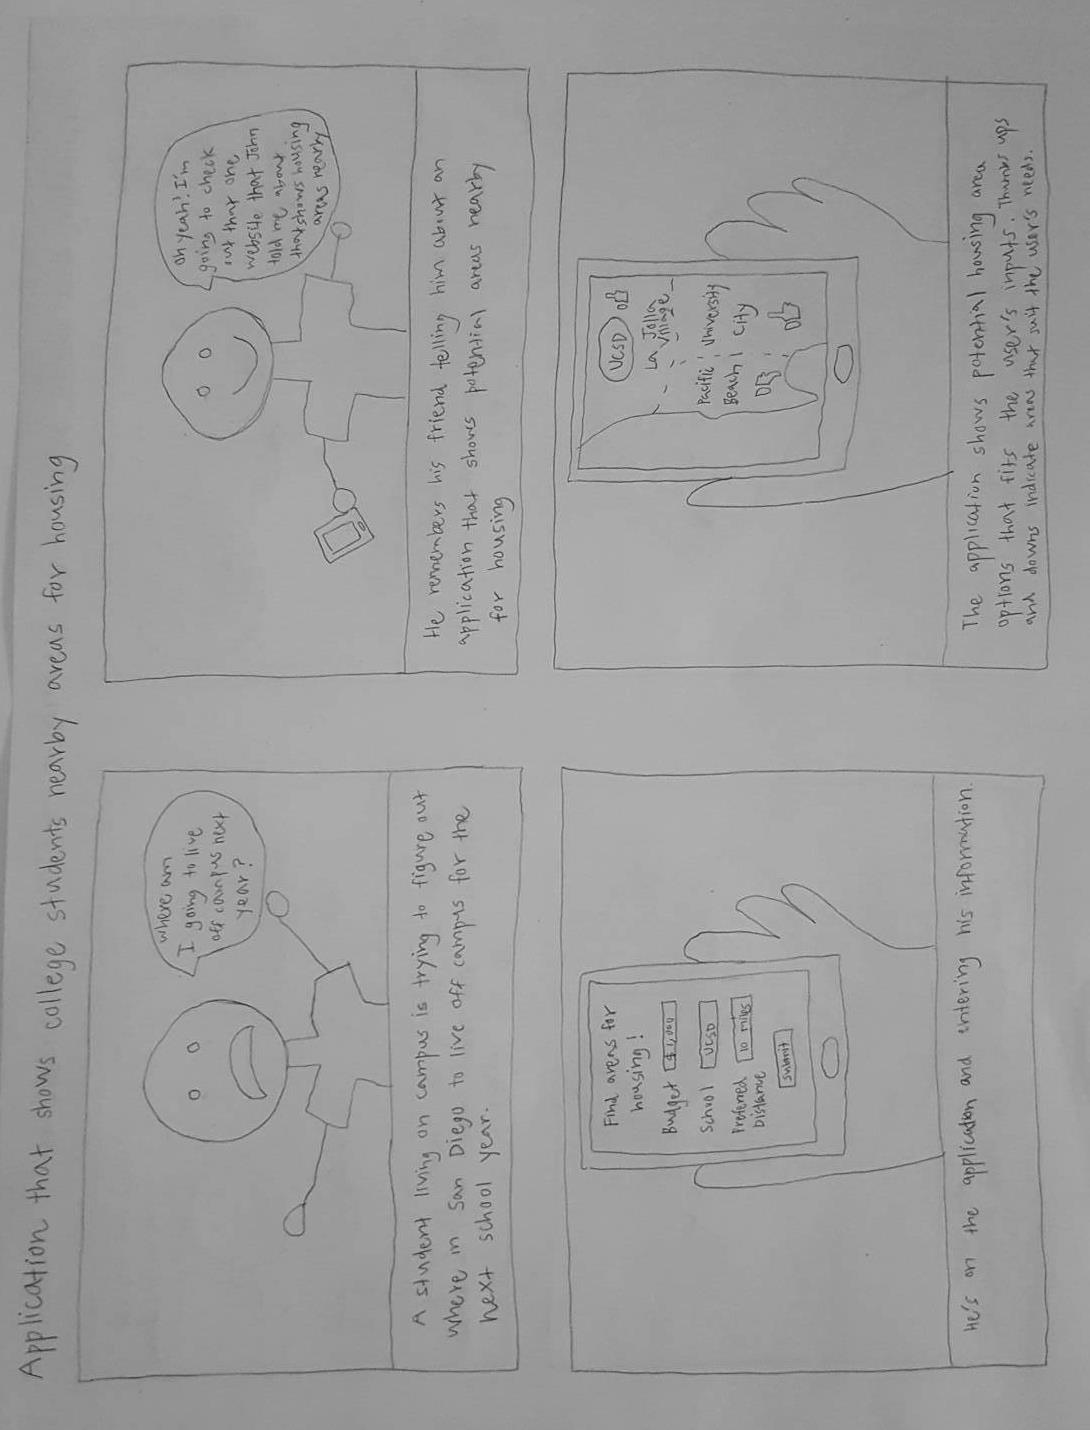 Application that shows college students nearby areas for housing
where am
I going to live
off campus next
year?
A student living on campus is trying to figure out
where in San Diego to live off campus for the
next school year.
oh yeah! I'm
going to check
out that one
website that John
told me about
that shows housing
areas nearby
He remembers his friend telling him about an
application that shows potential areas nearby
for housing
Find areas for
housing!
Budget $1,000
School UCSD
Preferred
Distance 10 miles
submit
He's on the application and entering his information.
UCSD
La Jolla
Village
Pacific
Beach
University
City
The application shows potential housing area
options that fits the user's inputs. Thumbs ups
and downs indicate areas that suit the user's needs.